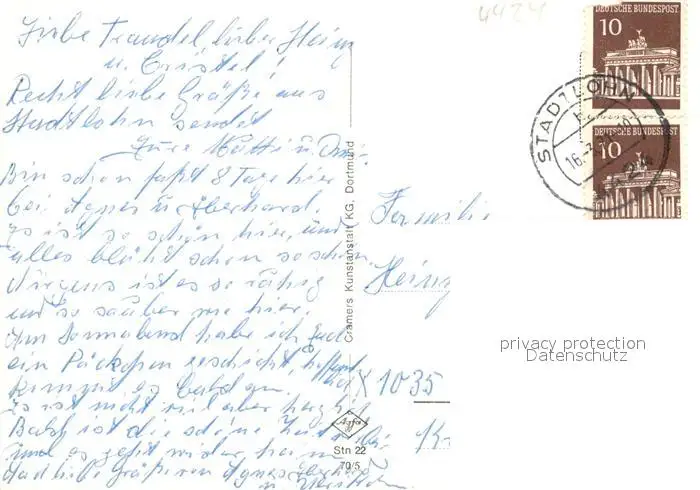 4424
Liebe Traudel, lieber Heinz
u. Cristel!
Recht liebe Grüße aus
Stadtlohn sendet
Eure Mutti u. Omi.
Bin schon fast 8 Tage hier
bei Agnes u. Eberhard.
Es ist so schön hier, und
alles blüht schon so schön
nirgens ist es so ruhig
und so sauber wie hier.
Am Sonnabend habe ich Euch
ein Päckchen geschickt hoffent
kommt es bald an.
Es ist nicht viel aber herzlich
Bald ist die schöne Zeit
und es geht wieder heim
liebe Grüße von Agnes Eberhard
u.
Cramers Kunstanstalt KG, Dortmund
Agfa
Stn 22
70/5
DEUTSCHE BUNDESPOST
10
DEUTSCHE BUNDESPOST
10
STADTLOHN
Familie
Heinz
privacy protection
Datenschutz
1035